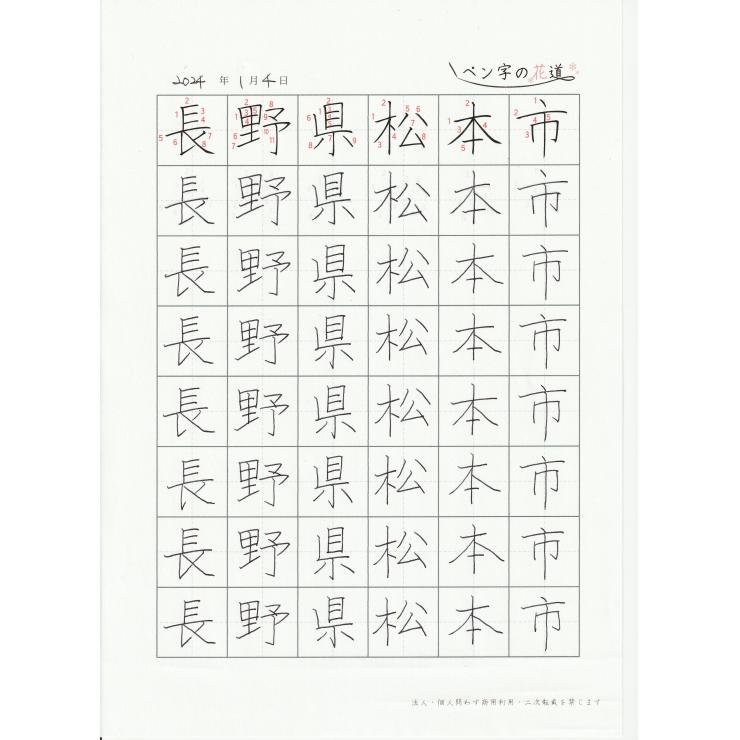 2024 年 1 月 4 日
ペン字の花道
長野県松本市
長野県松本市
長野県松本市
長野県松本市
長野県松本市
長野県松本市
長野県松本市
長野県松本市
法人・個人問わず商用利用・二次転載を禁じます